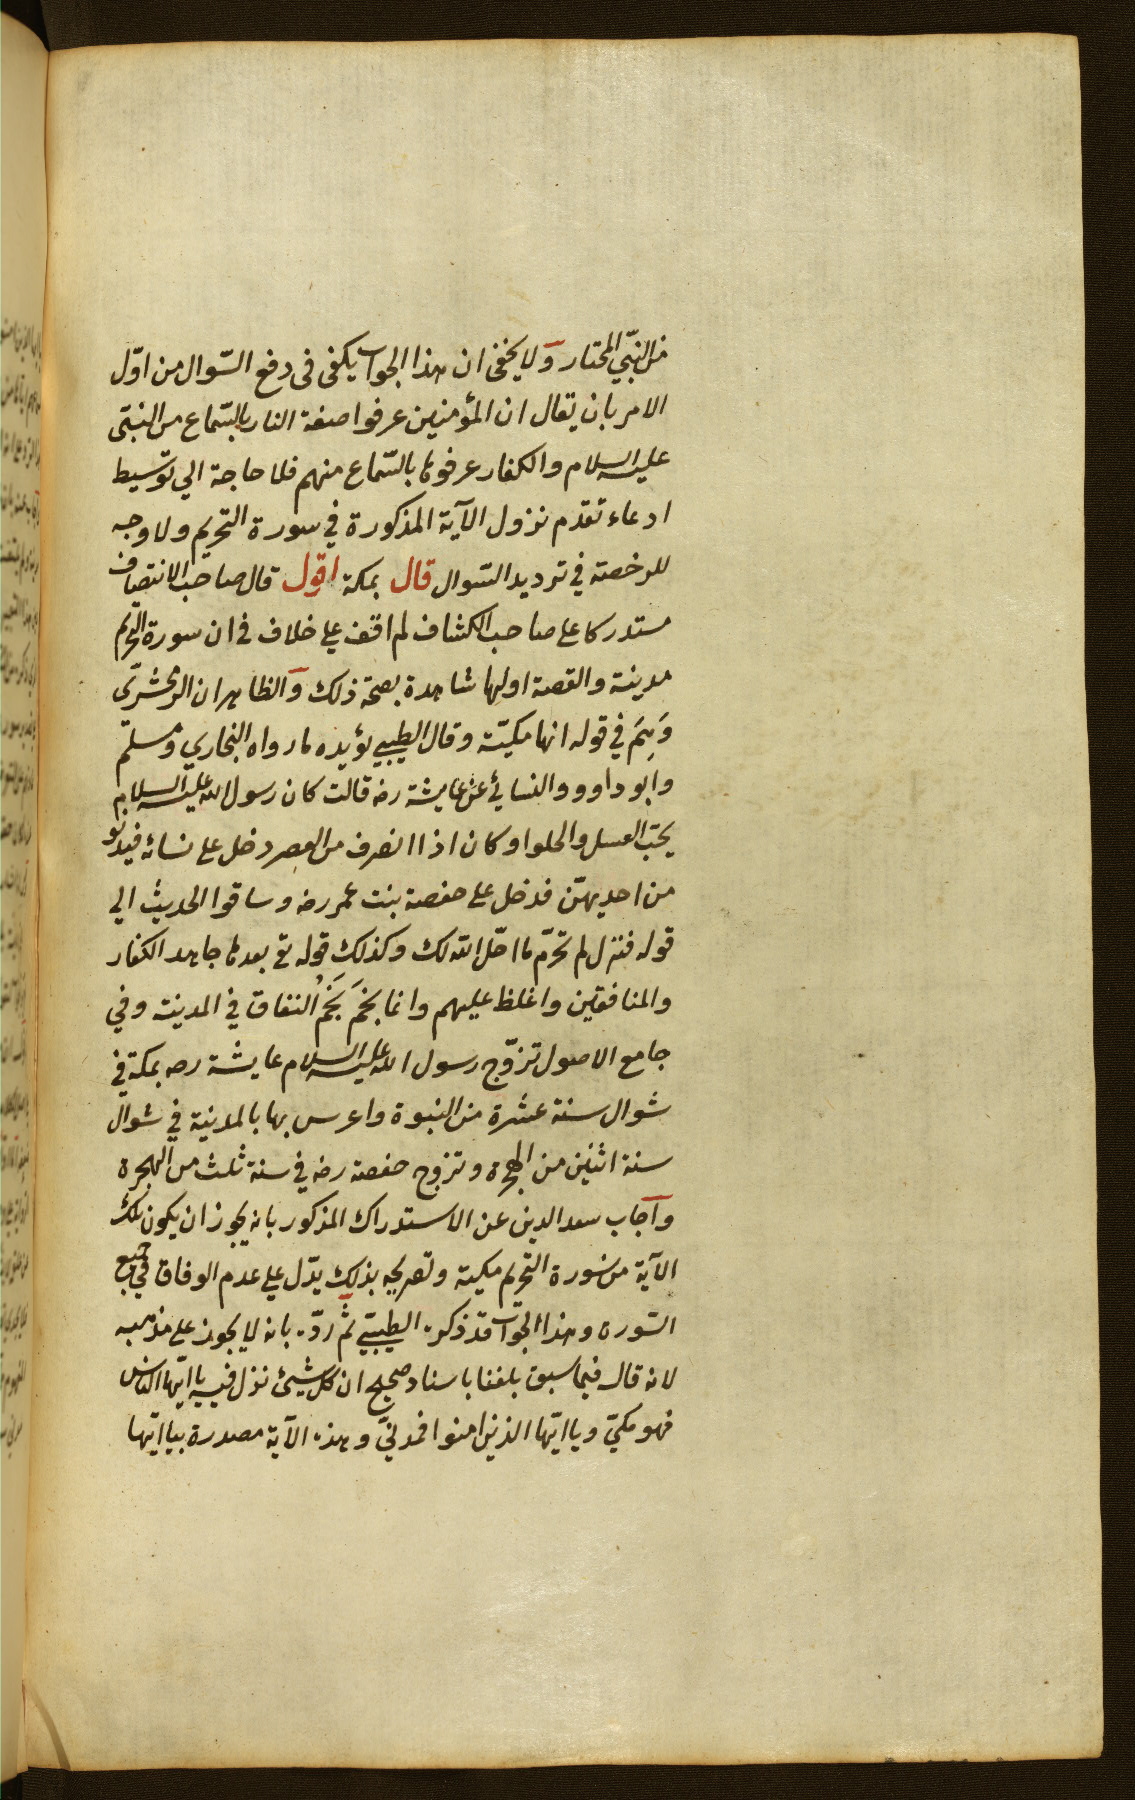 من النبيّ المختار ولا يخفى ان هذا الجواب يكفى فى دفع السّوال من اوّل
الامر بان يقال ان المؤمنين عرفوا صفة النار بالسّماع من النبيّ
عليه السلام والكفار عرفوها بالسّماع منهم فلا حاجة الي توسيط
ادعاء تقدم نزول الآية المذكورة في سورة التحريم ولا وجه
للرخصة في ترديد السّوال قال بمكة اقول قال صاحب الانتصاف
مستدركا على صاحب الكشاف لم اقف علي خلاف في ان سورة التحريم
مدينة والقصة اولها شاهدة بصحة ذلك والظاهر ان الزمخشرىّ
وَهِمَ في قوله انها مكيّة وقال الطيبي يؤيده ما رواه البخاري ومسلم
وابو داوود والنسائي عن عايشة رضه قالت كان رسول الله عليه السلام
يحبّ العسل والحلوا وكان اذا انصرف من العصر دخل على نسائه فيدنو
من احديهنّ فدخل علي حفصة بنت عمر رضه وساقوا الحديث الي
قوله فنزل لم تحرّم ما احّل الله لك وكذلك قوله تع بعدها جاهد الكفار
والمنافقين واغلظ عليهم وانما نجمَ نَجَمُ النفاق في المدينة وفي
جامع الاصول تزوّج رسول الله عليه السلام عايشة رضه بمكة في
شوال سنة عشرة من النبوة واعرس بها بالمدينة في شوال
سنة اثنين من الهجرة وتزوج حفصة رضه في سنة ثلث من الهجرة
وآجاب سعد الدين عن الاستدراك المذكور بانه يجوز ان يكون تلك
الآية من سورة التحريم مكية وتصريحه بذلك يدّل علي عدم الوفاق في جميع
السّورة وهذا الجواب قد ذكره الطيبيّ ثم ردّه بانه لا يجوز على مذهبه
لانه قال فيما سبق بلغنا باسناد صحيح ان كل شيئ نزل فيه يا ايّها الناس
فهو مكيّ ويا ايّها الذين امنوا فمدنيّ وهذه الآية مصدرة بيا ايّها